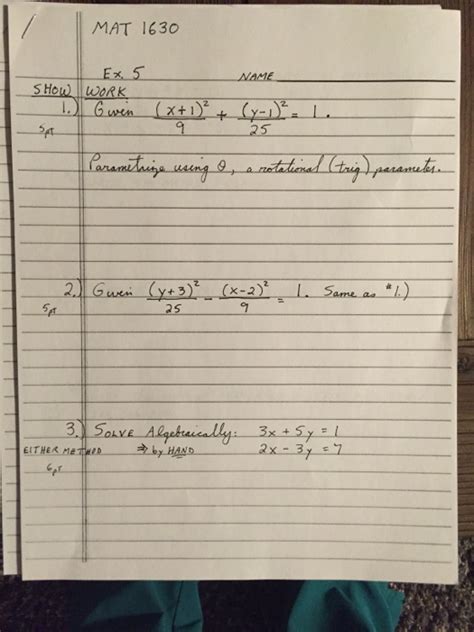 1
MAT 1630
Ex. 5 NAME
SHOW WORK
1.) Given (x+1)²/9 + (y-1)²/25 = 1.
5pt
Parametrize using θ, a rotational (trig) parameter.
2.) Given (y+3)²/25 - (x-2)²/9 = 1. Same as #1.)
5pt
3.) SOLVE Algebraically: 3x + 5y = 1
EITHER METHOD ⇒ by HAND 2x - 3y = 7
6pt